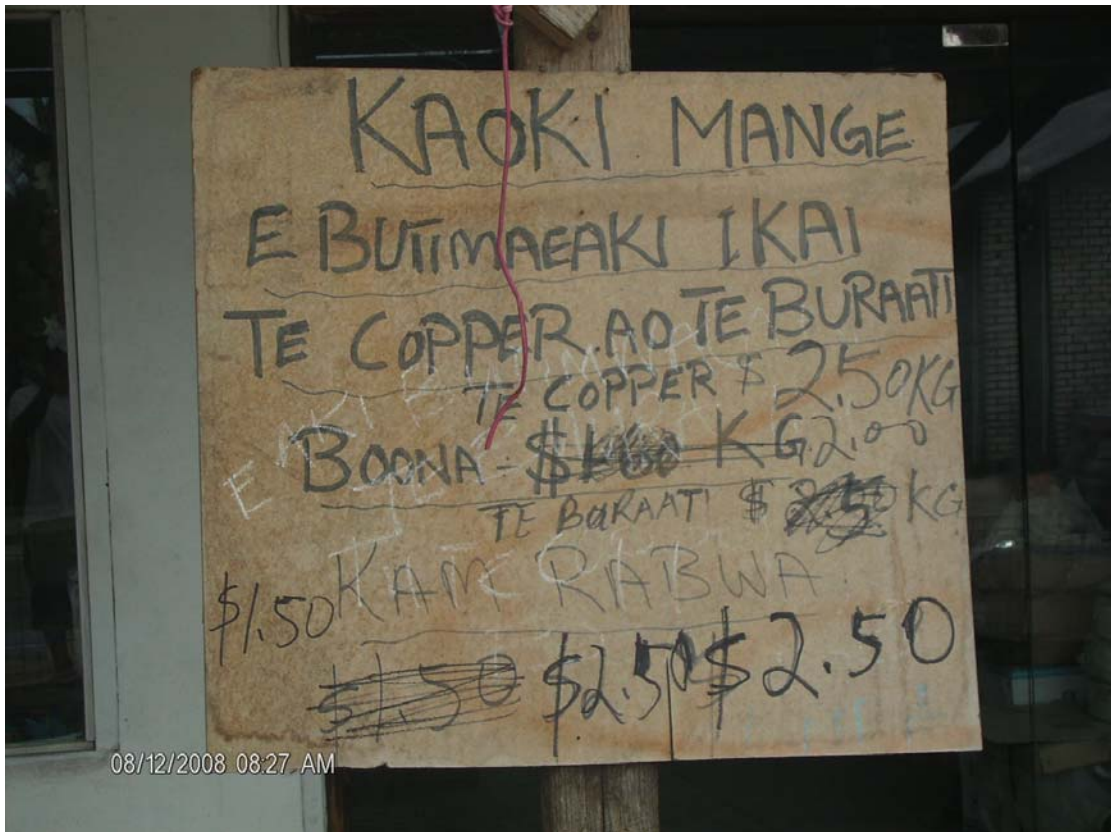 KAOKI MANGE
E BUTIMAEAKI IKAI
TE COPPER AO TE BURAATI
TE COPPER $ 2.50KG
BOONA - $ KG 2.00
TE BURAATI $ KG
KAM RABWA
$1.50
$1.50 $2.50 $2.50
08/12/2008 08:27 AM